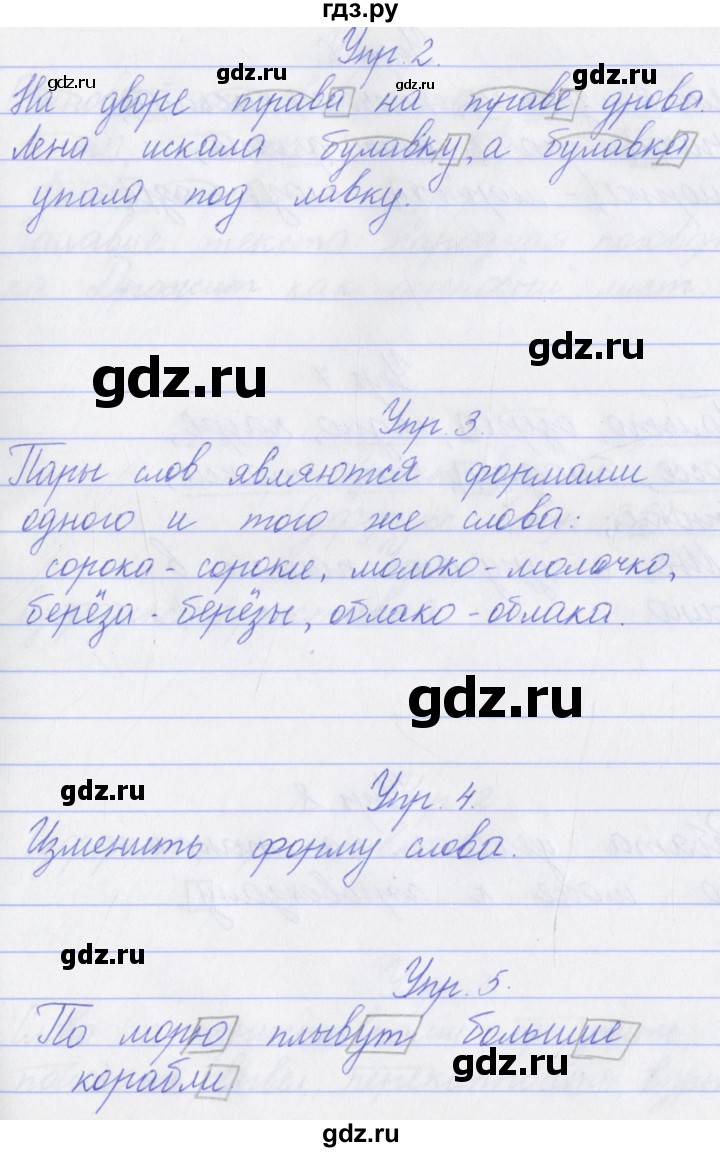 гдз.ру
Упр. 2.
gdz.ru gdz.ru gdz.ru gdz.ru
На дворе трава на траве дрова.
Лена искала булавку, а булавка
упала под лавку.
gdz.ru
gdz.ru
Упр. 3.
Пары слов являются формами
одного и того же слова:
сорока - сороки, молоко - молочко,
берёза - берёзы, облако - облака.
gdz.ru
gdz.ru
Упр. 4.
Изменить форму слова.
gdz.ru
Упр. 5.
По морю плывут большие
gdz.ru
корабли
gdz.ru